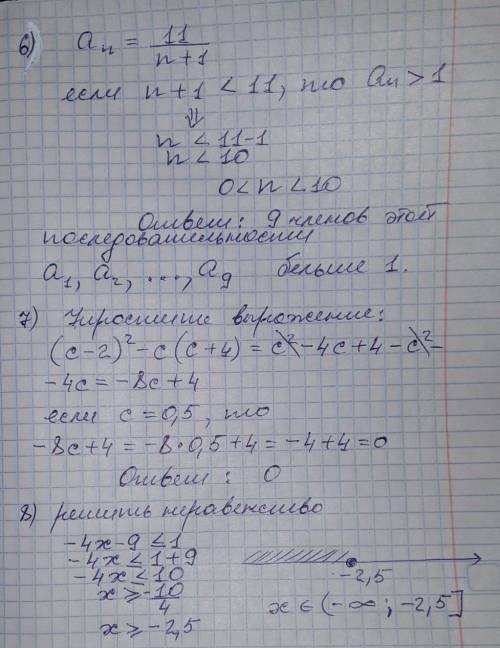 6) aₙ = 11/(n+1)
если n+1 < 11, то aₙ > 1
⇓
n < 11-1
n < 10
0 < n < 10
Ответ: 9 членов этой
последовательности
a₁, a₂, ..., a₉ больше 1.
7) Упростить выражение:
(c-2)² - c(c+4) = c² - 4c + 4 - c² -
-4c = -8c + 4
если c = 0,5, то
-8c+4 = -8·0,5+4 = -4+4 = 0
Ответ: 0
8) решить неравенство
-4x-9 ≤ 1
-4x ≤ 1+9
-4x ≤ 10
x ≥ -10/4
x ≥ -2,5
-2,5
x ∈ (-∞; -2,5]